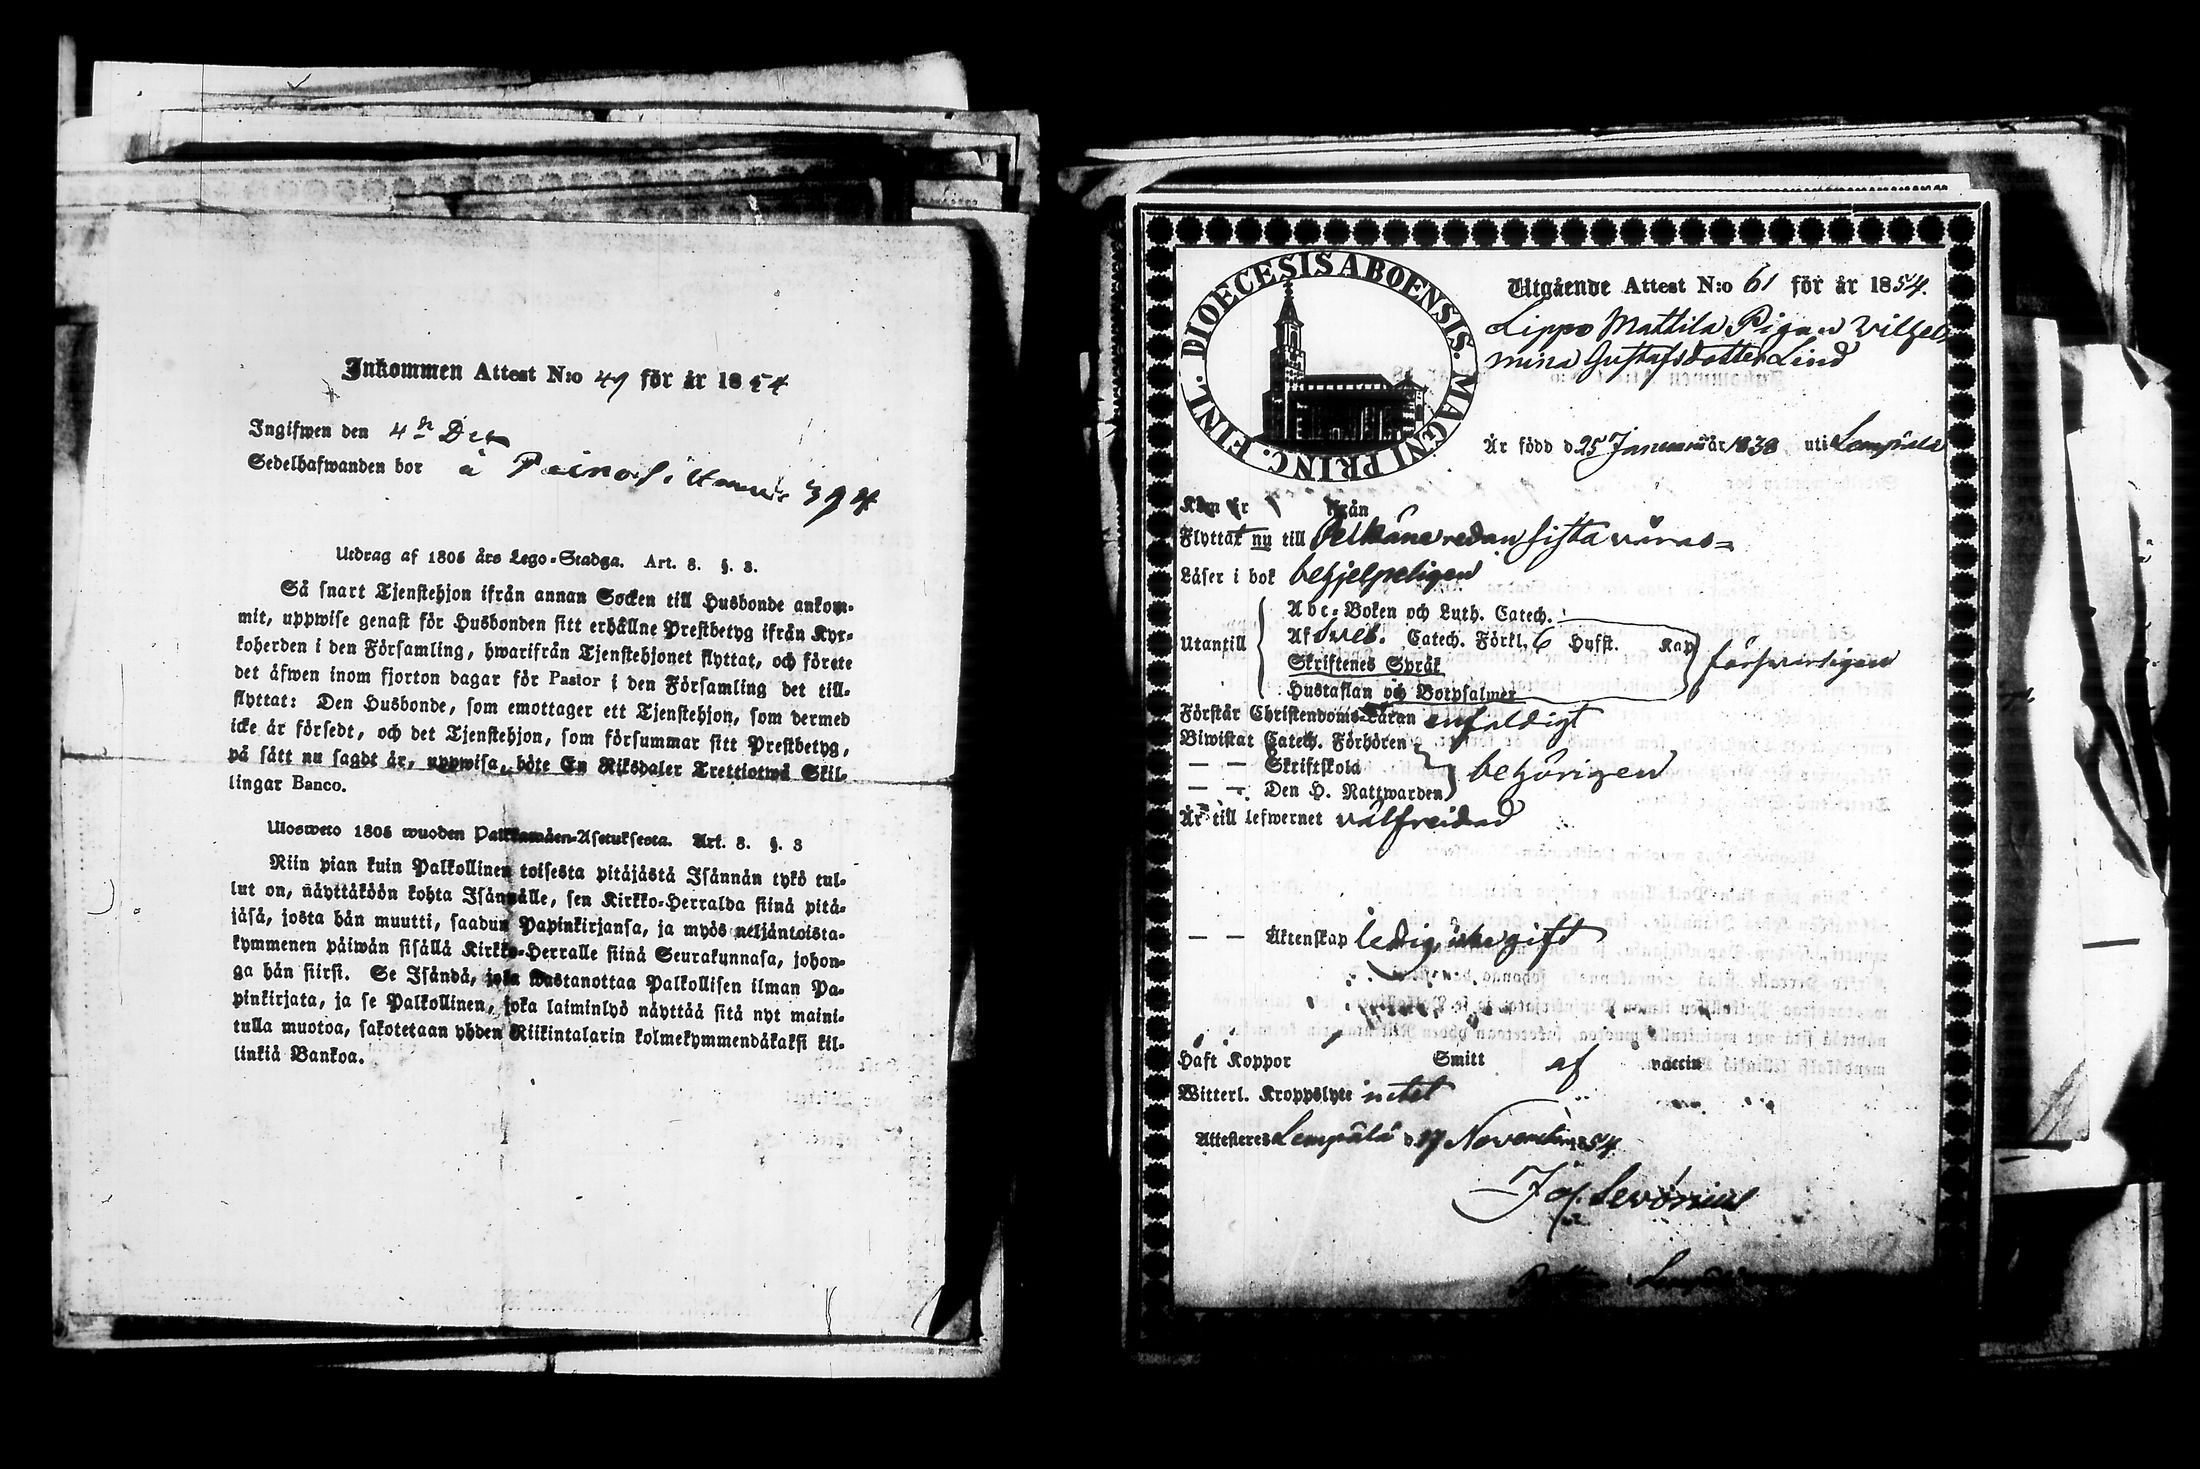 Inkommen Attest N:o 49 för år 1854
Ingifwen den 4 Dec
Sedelhafwanden bor å 394
Utdrag af 1805 års Lego-Stadga. Art. 3. §. 3.
Så snart Tjenstehjon ifrån annan Socken till Husbonde ankom-
mit, uppwise genast för Husbonden sitt erhållne Prestbetyg ifrån Kyr-
koherden i den Församling, hwarifrån Tjenstehjonet flyttat, och förete
det äfwen inom fjorton dagar för Pastor i den Församling det till-
flyttat: Den Husbonde, som emottager ett Tjenstehjon, som dermed
icke är försedt, och det Tjenstehjon, som försummar sitt Prestbetyg,
på sätt nu sagdt är, uppwisa, böte En Riksdaler Trettiotwå Skil-
lingar Banco.
Ulosweto 1805 wuoden Palkkawäen-Asetuksesta. Art. 3. §. 3
Niin pian kuin Palkollinen toisesta pitäjästä Isännän tykö tul-
lut on, näyttäköön kohta Isännälle, sen Kirkko-Herralda siinä pitä-
jäsä, josta hän muutti, saadun Papinkirjansa, ja myös neljäntoista-
kymmenen päiwän sisällä Kirkko-Herralle siinä Seurakunnasa, johon-
ga hän siirsi. Se Isändä, joka wastanottaa Palkollisen ilman Pa-
pinkirjata, ja se Palkollinen, joka laiminlyö näyttää sitä nyt maini-
tulla muotoa, sakotetaan yhden Riikintalarin kolmekymmendäkaksi kil-
linkiä Bankoa.
DIOECESIS ABOENSIS. MAGNI PRINC. FINL.
Utgående Attest N:o 61 för år 1854.
Lippo Mattila Pigan Vilhel-
mina Gustafsdotter Lind
Är född d. 25 Januarii år 1838 uti Lempälä
Kom år från
Flyttat nu till Pelkäne redan sista våras
Läser i bok behjelpeligen
Utantill
Abc-Boken och Luth. Catech.
Af Sveb. Catech. Förkl. 6 Hufst. Kap
Skriftenes Språk
Hustaflan och Botpsalmer
försvarligen
Förstår Christendoms-Läran enfaldigt
Biwistat Catech. Förhören
— — Skriftskola
— — Den H. Nattwarden
behörigen
Är till lefwernet välfreidad
— — Äktenskap ledig, icke gift
Haft Koppor Smitt af vaccin
Witterl. Kroppslyte intet
Attesteres Lempälä d 27 November 1854